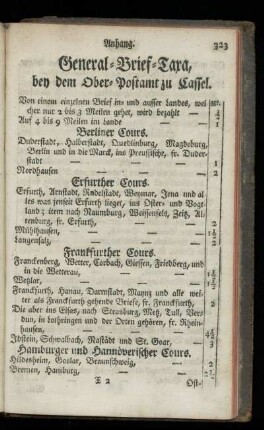 Anhang. 323
General-Brief-Taxa,
bey dem Ober-Postamt zu Cassel.
Von einem einzelnen Brief in- und ausser Landes, wel
cher nur 2 bis 3 Meilen gehet, wird bezahlt
Auf 4 bis 9 Meilen im Lande 1
Berliner Cours.
Duderstadt, Halberstadt, Quedlinburg, Magdeburg,
Berlin und in die Marck, ins Preussische, fr. Duder-
stadt 1
Nordhausen 2
Erfurther Cours.
Erfurth, Arnstadt, Rudelstadt, Weymar, Jena und al
les was jenseit Erfurth lieget, ins Oster- und Vogt
land; item nach Naumburg, Weissenfels, Zeitz, Al-
tenburg, fr. Erfurth, 2
Mühlhausen, 1½
Langensaltz, 2
Franckfurther Cours.
Franckenberg, Wetter, Corbach, Giessen, Friedberg, und
in die Wetterau, 1½
Wetzlar,
Franckfurth, Hanau, Darmstadt, Maynz und alle wei-
ter als Franckfurth gehende Briefe, fr. Franckfurth, 2
Die aber ins Elsas, nach Strasburg, Metz, Tull, Ver-
dun, in Lothringen und der Orten gehören, fr. Rhein-
hausen,
Idstein, Schwalbach, Nastädt und St. Goar, 3
Hamburger und Hannöverischer Cours.
Hildesheim, Goslar, Braunschweig,
Bremen, Hamburg, 2
E 2 Ost-